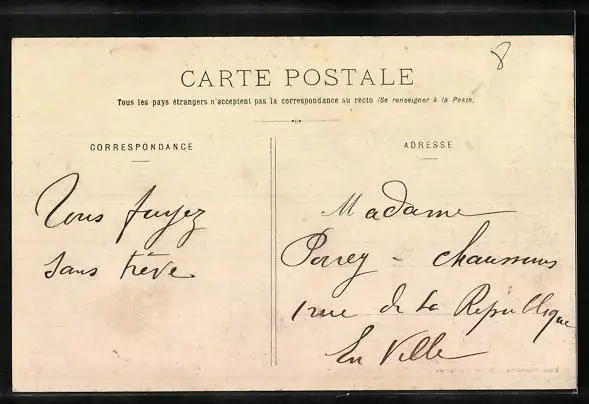 8
CARTE POSTALE
Tous les pays étrangers n'acceptent pas la correspondance au recto (Se renseigner à la Poste)
CORRESPONDANCE
Vous fuyez
sans trève
ADRESSE
Madame
- chaussures
1 rue de la République
En Ville